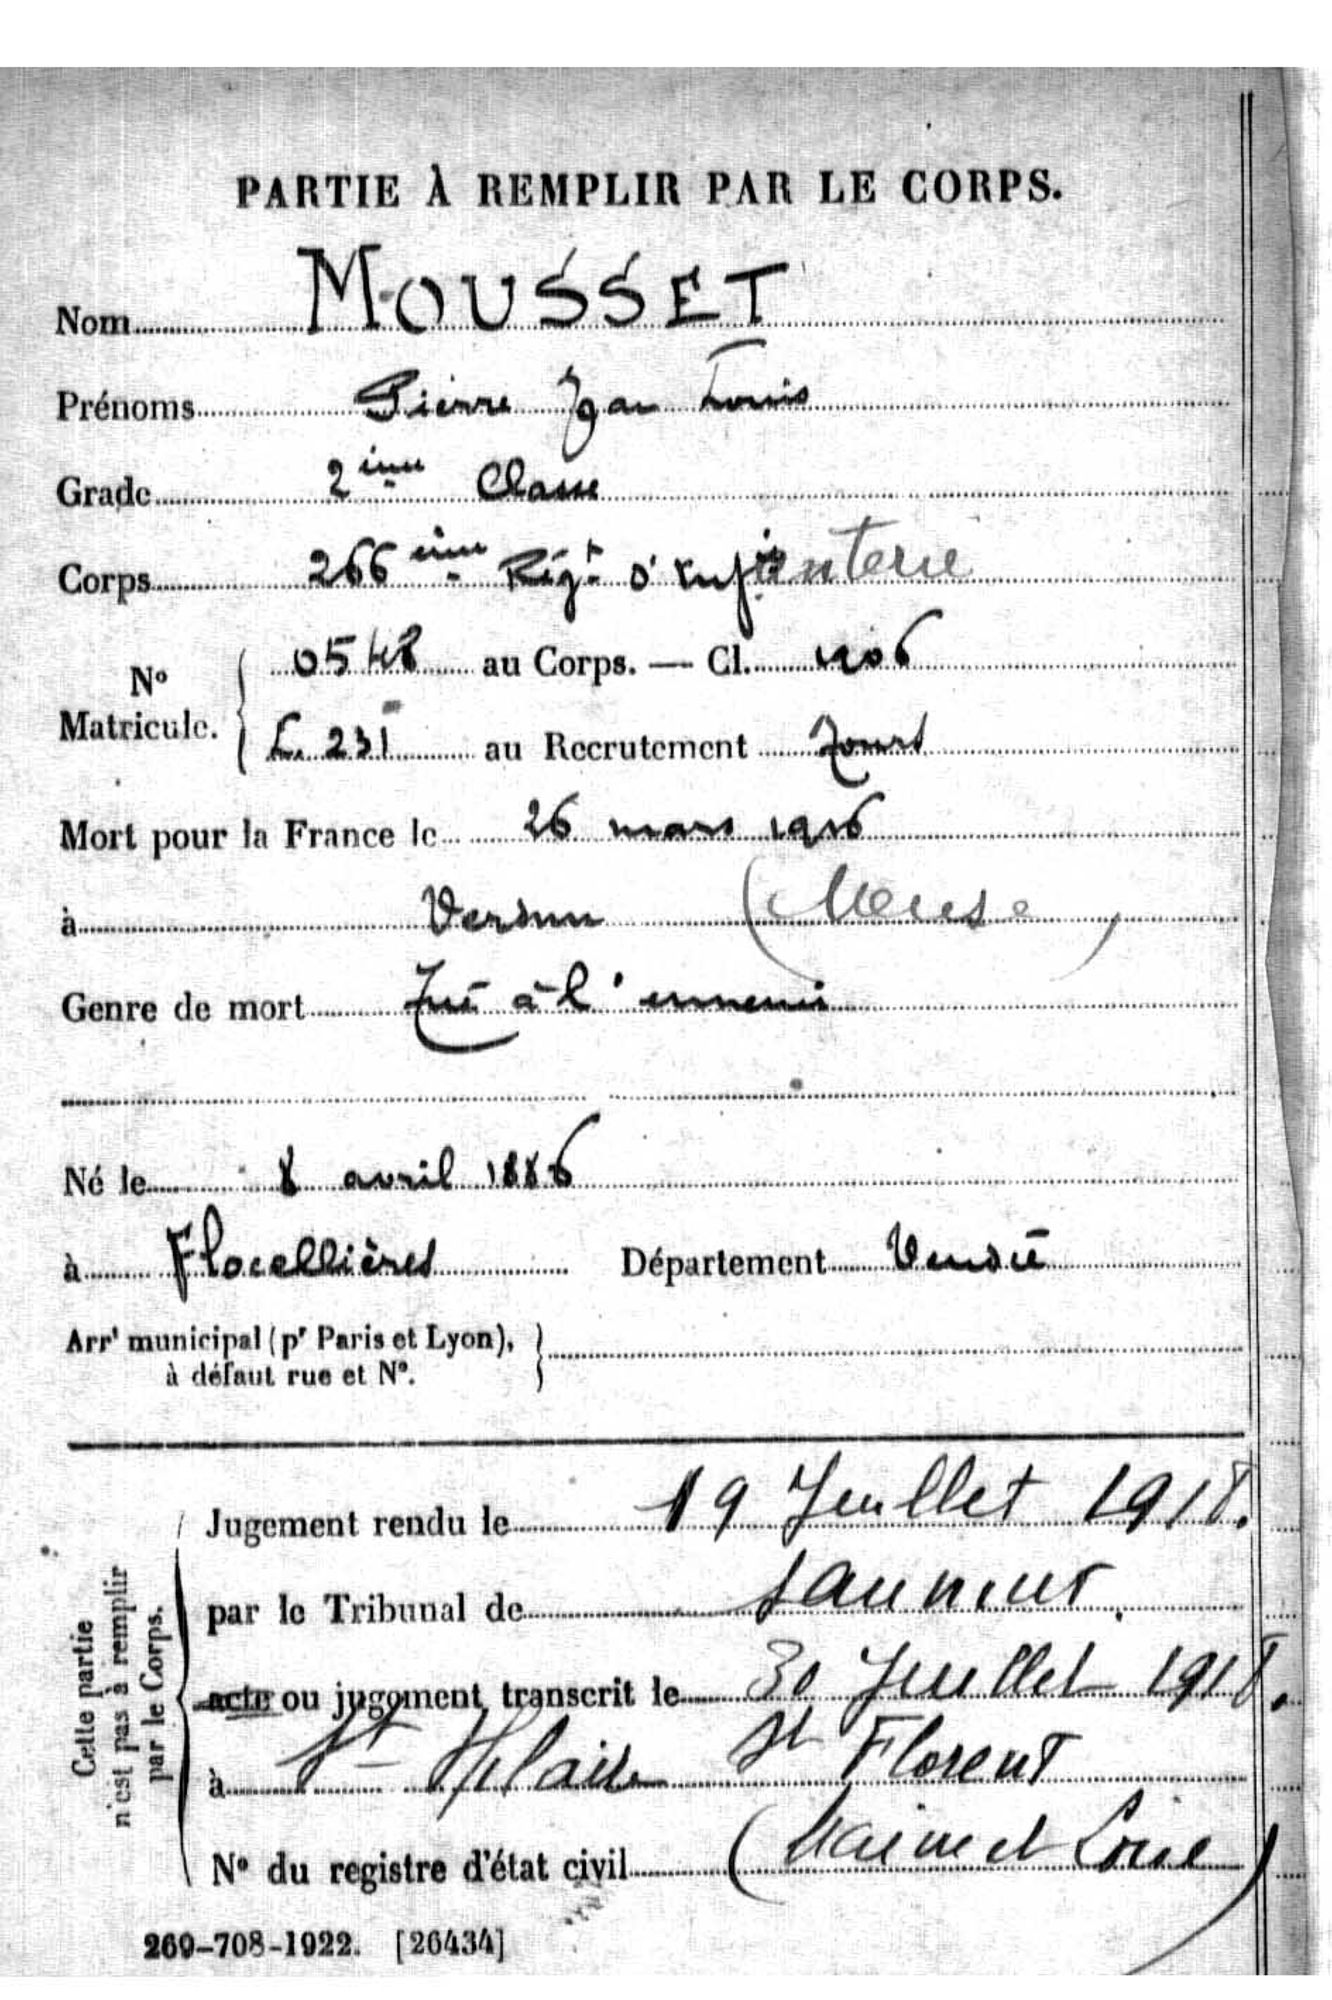 PARTIE À REMPLIR PAR LE CORPS.
Nom MOUSSET
Prénoms Pierre Jean Louis
Grade 2ième Classe
Corps 266ième Régt d'Infanterie
N° Matricule. 0548 au Corps. — Cl. 1906
L. 231 au Recrutement Tours
Mort pour la France le 26 mars 1916
à Verdun (Meuse)
Genre de mort Tué à l'ennemi
Né le 8 avril 1886
à Flocellières Département Vendée
Arrt municipal (pr Paris et Lyon),
à défaut rue et N°.
Cette partie
n'est pas à remplir
par le Corps.
Jugement rendu le 19 Juillet 1918.
par le Tribunal de Saumur.
acte ou jugement transcrit le 30 Juillet 1918.
à St Hilaire St Florent
N° du registre d'état civil (Maine et Loire)
269-708-1922. [26434]